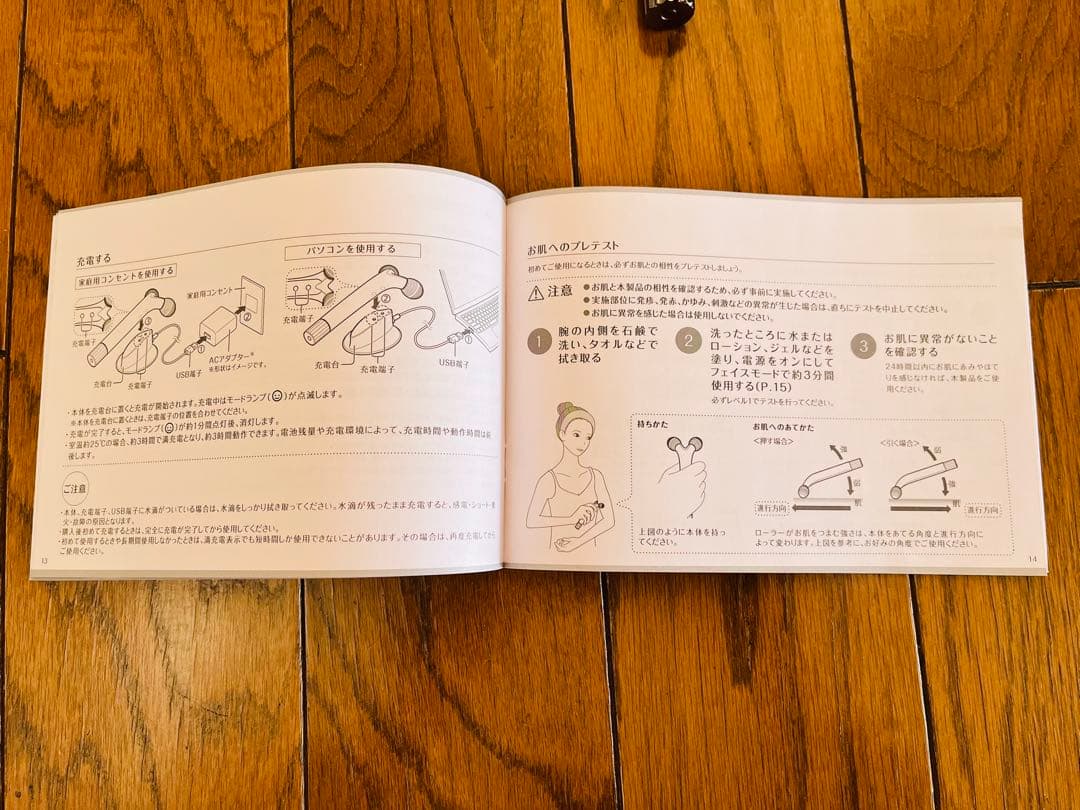 充電する
家庭用コンセントを使用する
家庭用コンセント
充電端子
ACアダプター※
※形状はイメージです。
USB端子
充電台
充電端子
パソコンを使用する
充電端子
充電台
充電端子
USB端子
・本体を充電台に置くと充電が開始されます。充電中はモードランプ()が点滅します。
※本体を充電台に置くときは、充電端子の位置を合わせてください。
・充電が完了すると、モードランプ()が約1分間点灯後、消灯します。
・室温約25℃の場合、約3時間で満充電となり、約3時間動作できます。電池残量や充電環境によって、充電時間や動作時間は前
後します。
ご注意
・本体、充電端子、USB端子に水滴がついている場合は、水滴をしっかり拭き取ってください。水滴が残ったまま充電すると、感電・ショート・発
火・故障の原因となります。
・購入後初めて充電するときは、完全に充電が完了してから使用してください。
・初めて使用するときや長期間使用しなかったときは、満充電表示でも短時間しか使用できないことがあります。その場合は、再度充電してから
ご使用ください。
13
お肌へのプレテスト
初めてご使用になるときは、必ずお肌との相性をプレテストしましょう。
注意
●お肌と本製品の相性を確認するため、必ず事前に実施してください。
●実施部位に発疹、発赤、かゆみ、刺激などの異常が生じた場合は、直ちにテストを中止してください。
●お肌に異常を感じた場合は使用しないでください。
1
腕の内側を石鹸で
洗い、タオルなどで
拭き取る
2
洗ったところに水または
ローション、ジェルなどを
塗り、電源をオンにして
フェイスモードで約3分間
使用する(P.15)
必ずレベル1でテストを行ってください。
3
お肌に異常がないこと
を確認する
24時間以内にお肌に赤みやほて
りを感じなければ、本製品をご使
用ください。
持ちかた
上図のように本体を持っ
てください。
お肌へのあてかた
<押す場合>
強
弱
肌
進行方向
<引く場合>
弱
強
肌
進行方向
ローラーがお肌をつまむ強さは、本体をあてる角度と進行方向に
よって変わります。上図を参考に、お好みの角度でご使用ください。
14